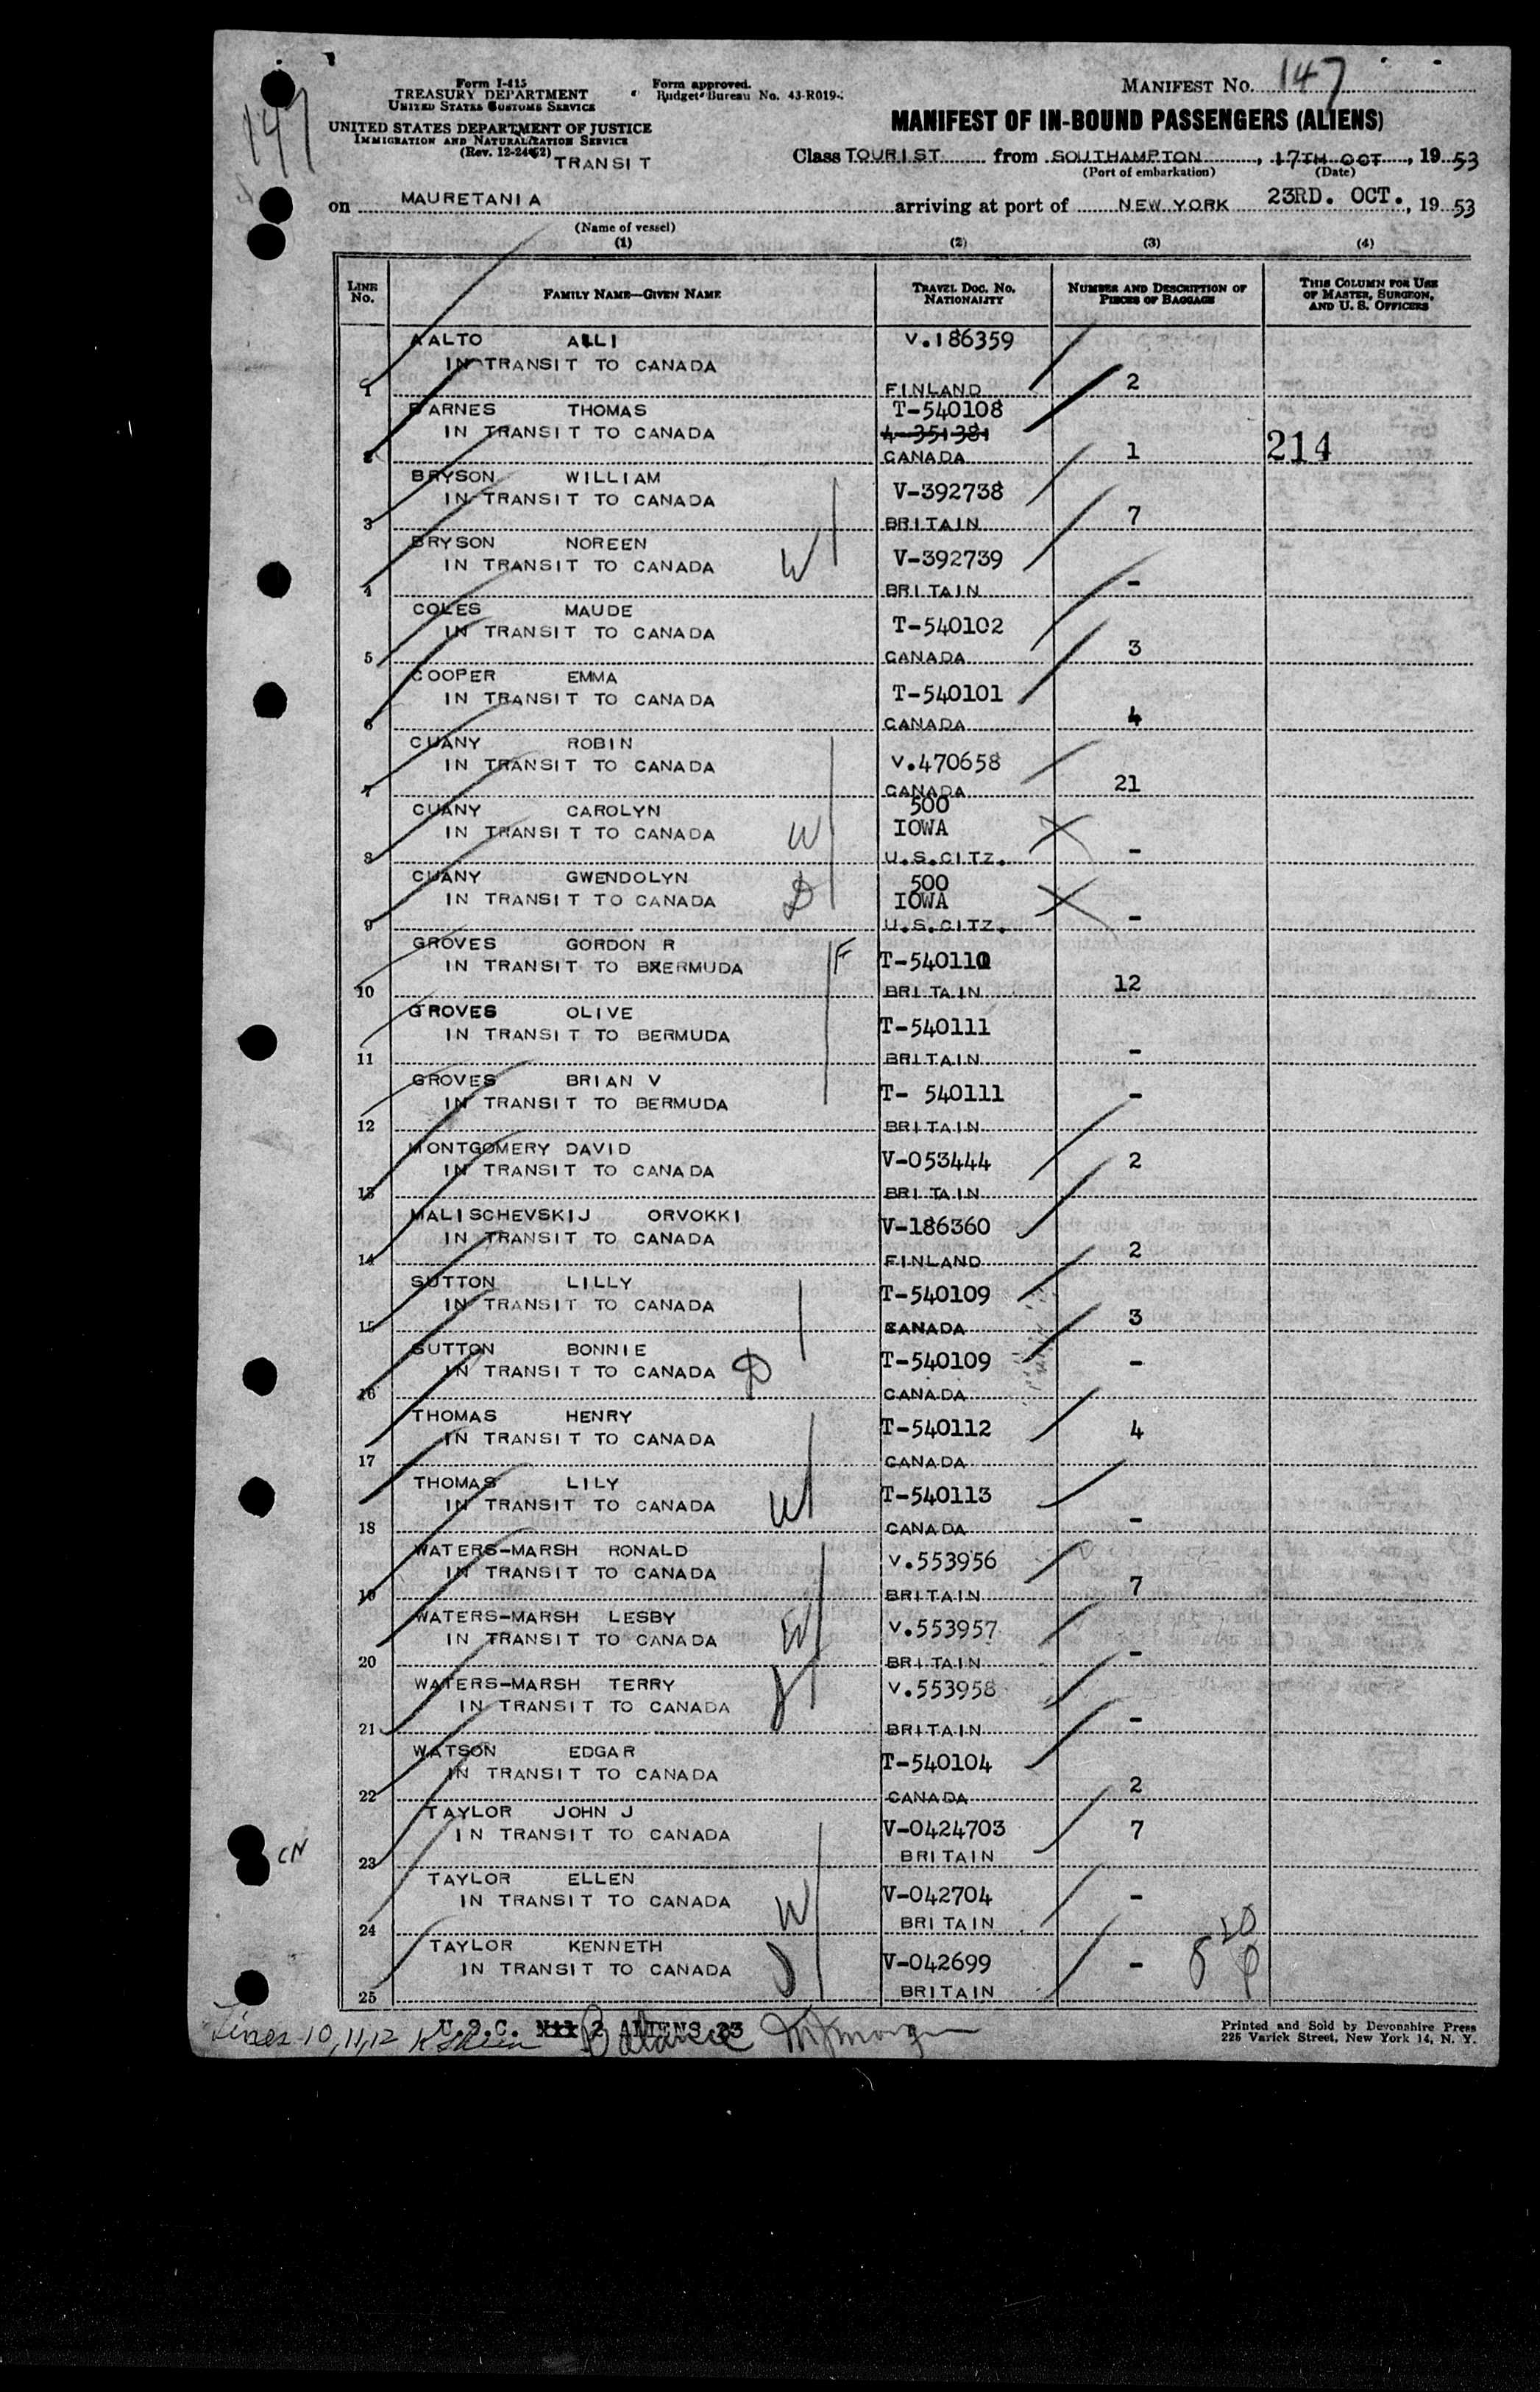 147
Form I-415
TREASURY DEPARTMENT
UNITED STATES CUSTOMS SERVICE
UNITED STATES DEPARTMENT OF JUSTICE
IMMIGRATION AND NATURALIZATION SERVICE
TRANSIT
Form approved.
Budget Bureau No. 43-R019-
MANIFEST NO. 147
MANIFEST OF IN-BOUND PASSENGERS (ALIENS)
Class TOURIST from SOUTHAMPTON, 17TH OCT, 19 53
(Port of embarkation) (Date)
on MAURETANIA arriving at port of NEW YORK 23RD. OCT., 19 53
(Name of vessel)
(1) (2) (3) (4)
LINE NO. FAMILY NAME—GIVEN NAME TRAVEL DOC. NO. NATIONALITY NUMBER AND DESCRIPTION OF PIECES OF BAGGAGE THIS COLUMN FOR USE OF MASTER, SURGEON, AND U. S. OFFICERS
AALTO ALLI V.186359
IN TRANSIT TO CANADA
1 FINLAND 2
BARNES THOMAS T-540108
IN TRANSIT TO CANADA 4-351381
2 CANADA 1 214
BRYSON WILLIAM V-392738
IN TRANSIT TO CANADA
3 BRITAIN 7
BRYSON NOREEN V-392739
IN TRANSIT TO CANADA W
4 BRITAIN -
COLES MAUDE T-540102
IN TRANSIT TO CANADA
5 CANADA 3
COOPER EMMA T-540101
IN TRANSIT TO CANADA
6 CANADA 4
CUANY ROBIN V.470658
IN TRANSIT TO CANADA
7 CANADA 21
CUANY CAROLYN 500
IN TRANSIT TO CANADA W IOWA
8 U.S.CITZ. -
CUANY GWENDOLYN 500
IN TRANSIT TO CANADA D IOWA
9 U.S.CITZ. -
GROVES GORDON R F T-540110
IN TRANSIT TO BXERMUDA
10 BRITAIN 12
GROVES OLIVE T-540111
IN TRANSIT TO BERMUDA
11 BRITAIN -
GROVES BRIAN V T- 540111
IN TRANSIT TO BERMUDA -
12 BRITAIN
MONTGOMERY DAVID V-053444 2
IN TRANSIT TO CANADA
13 BRITAIN
MALISCHEVSKIJ ORVOKKI V-186360
IN TRANSIT TO CANADA
14 FINLAND 2
SUTTON LILLY T-540109
IN TRANSIT TO CANADA
15 CANADA 3
SUTTON BONNIE T-540109 -
IN TRANSIT TO CANADA D
16 CANADA
THOMAS HENRY T-540112 4
IN TRANSIT TO CANADA
17 CANADA
THOMAS LILY T-540113
IN TRANSIT TO CANADA W
18 CANADA -
WATERS-MARSH RONALD V.553956
IN TRANSIT TO CANADA
19 BRITAIN 7
WATERS-MARSH LESBY V.553957
IN TRANSIT TO CANADA W
20 BRITAIN -
WATERS-MARSH TERRY V.553958
IN TRANSIT TO CANADA
21 BRITAIN -
WATSON EDGAR T-540104
IN TRANSIT TO CANADA
22 CANADA 2
TAYLOR JOHN J V-0424703 7
IN TRANSIT TO CANADA
23 BRITAIN
CN
TAYLOR ELLEN V-042704 -
IN TRANSIT TO CANADA W
24 BRITAIN
TAYLOR KENNETH V-042699 -
IN TRANSIT TO CANADA
25 BRITAIN
Lines 10, 11, 12
U.S.C. Nil 2 ALIENS 23
Balance
Printed and Sold by Devonshire Press
225 Varick Street, New York 14, N. Y.